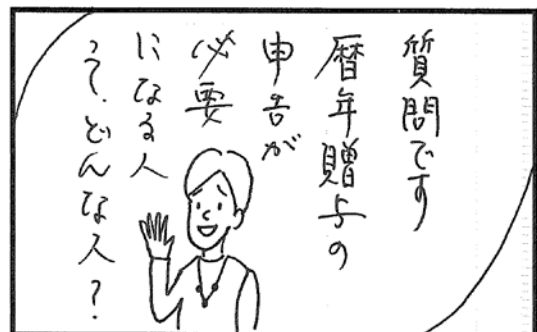 質問です
暦年贈与の
申告が
必要
になる人
って、どんな人？